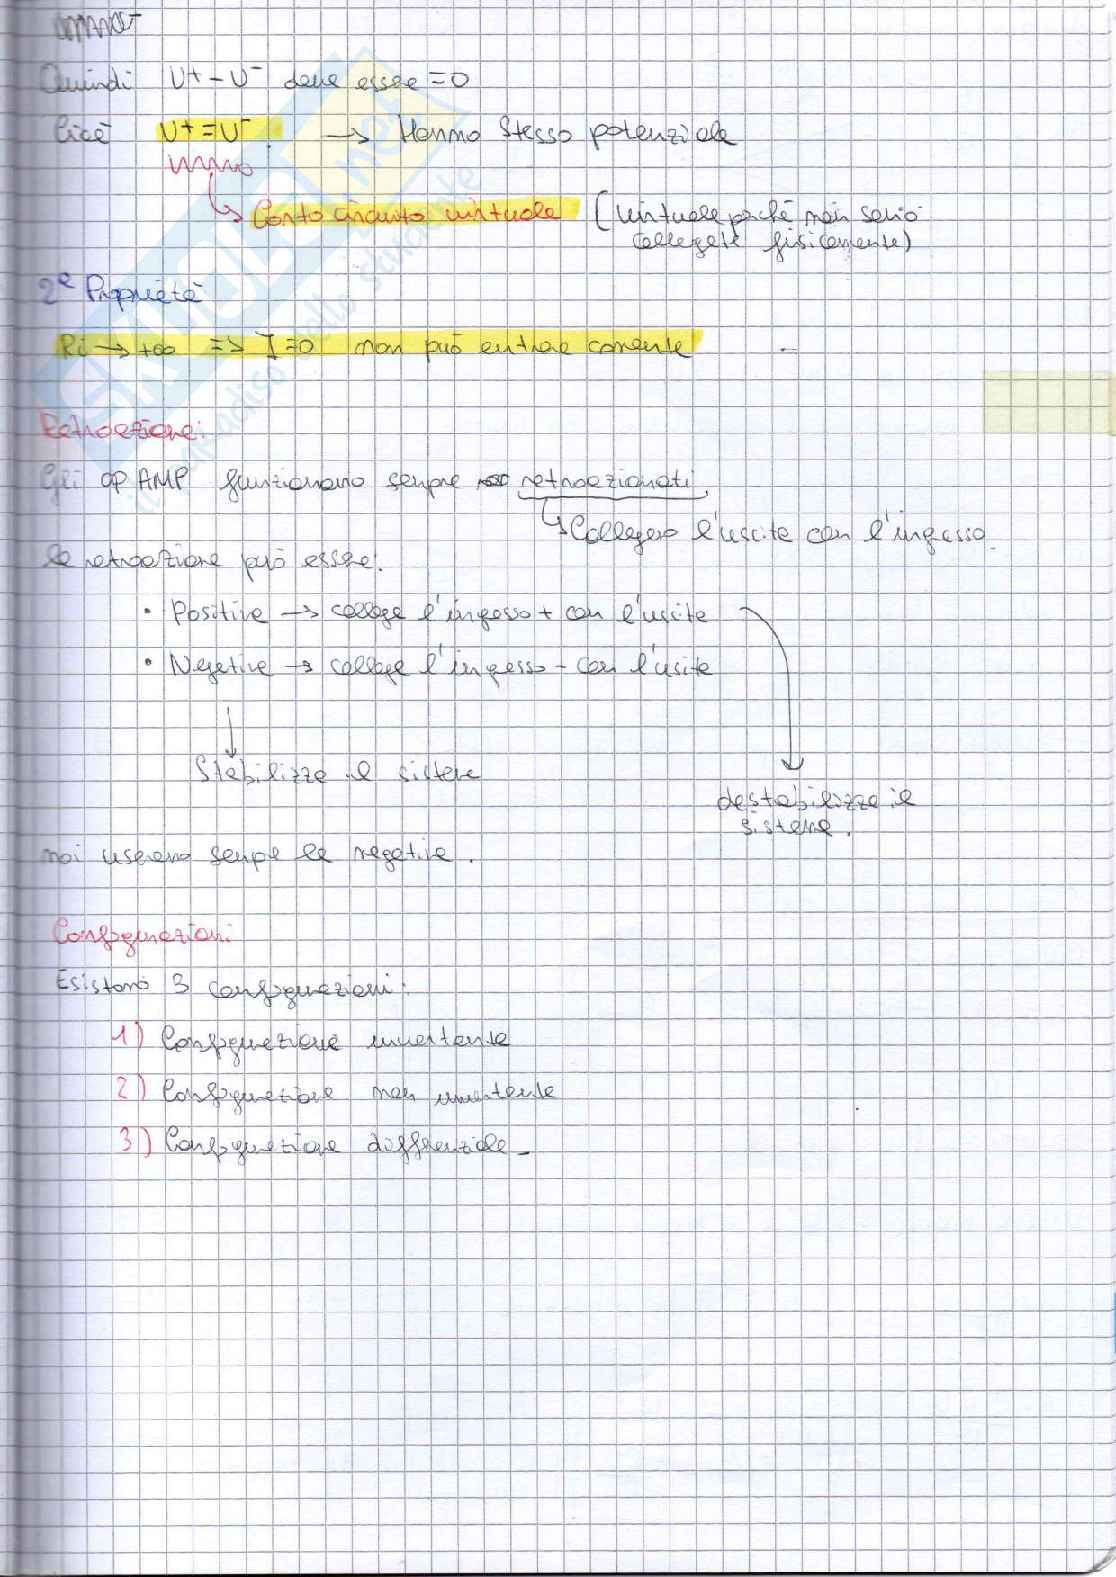 Quindi V⁺ - V⁻ deve essere = 0
Cioè V⁺ = V⁻ → Hanno stesso potenziale
Corto circuito virtuale (virtuale perché non sono
collegate fisicamente)
2ª Proprietà
Ri → +∞ => I=0 non può entrare corrente
Retroazione:
Gli OP AMP funzionano sempre retroazionati
Collegano l'uscita con l'ingresso
la retroazione può essere:
• Positiva → collega l'ingresso + con l'uscita
• Negativa → collega l'ingresso - con l'usita
Stabilizza il sistema
destabilizza il
sistema.
noi useremo sempre la negativa.
Configurazioni
Esistono 3 configurazioni:
1) Configurazione invertente
2) Configurazione non invertente
3) Configurazione differenziale